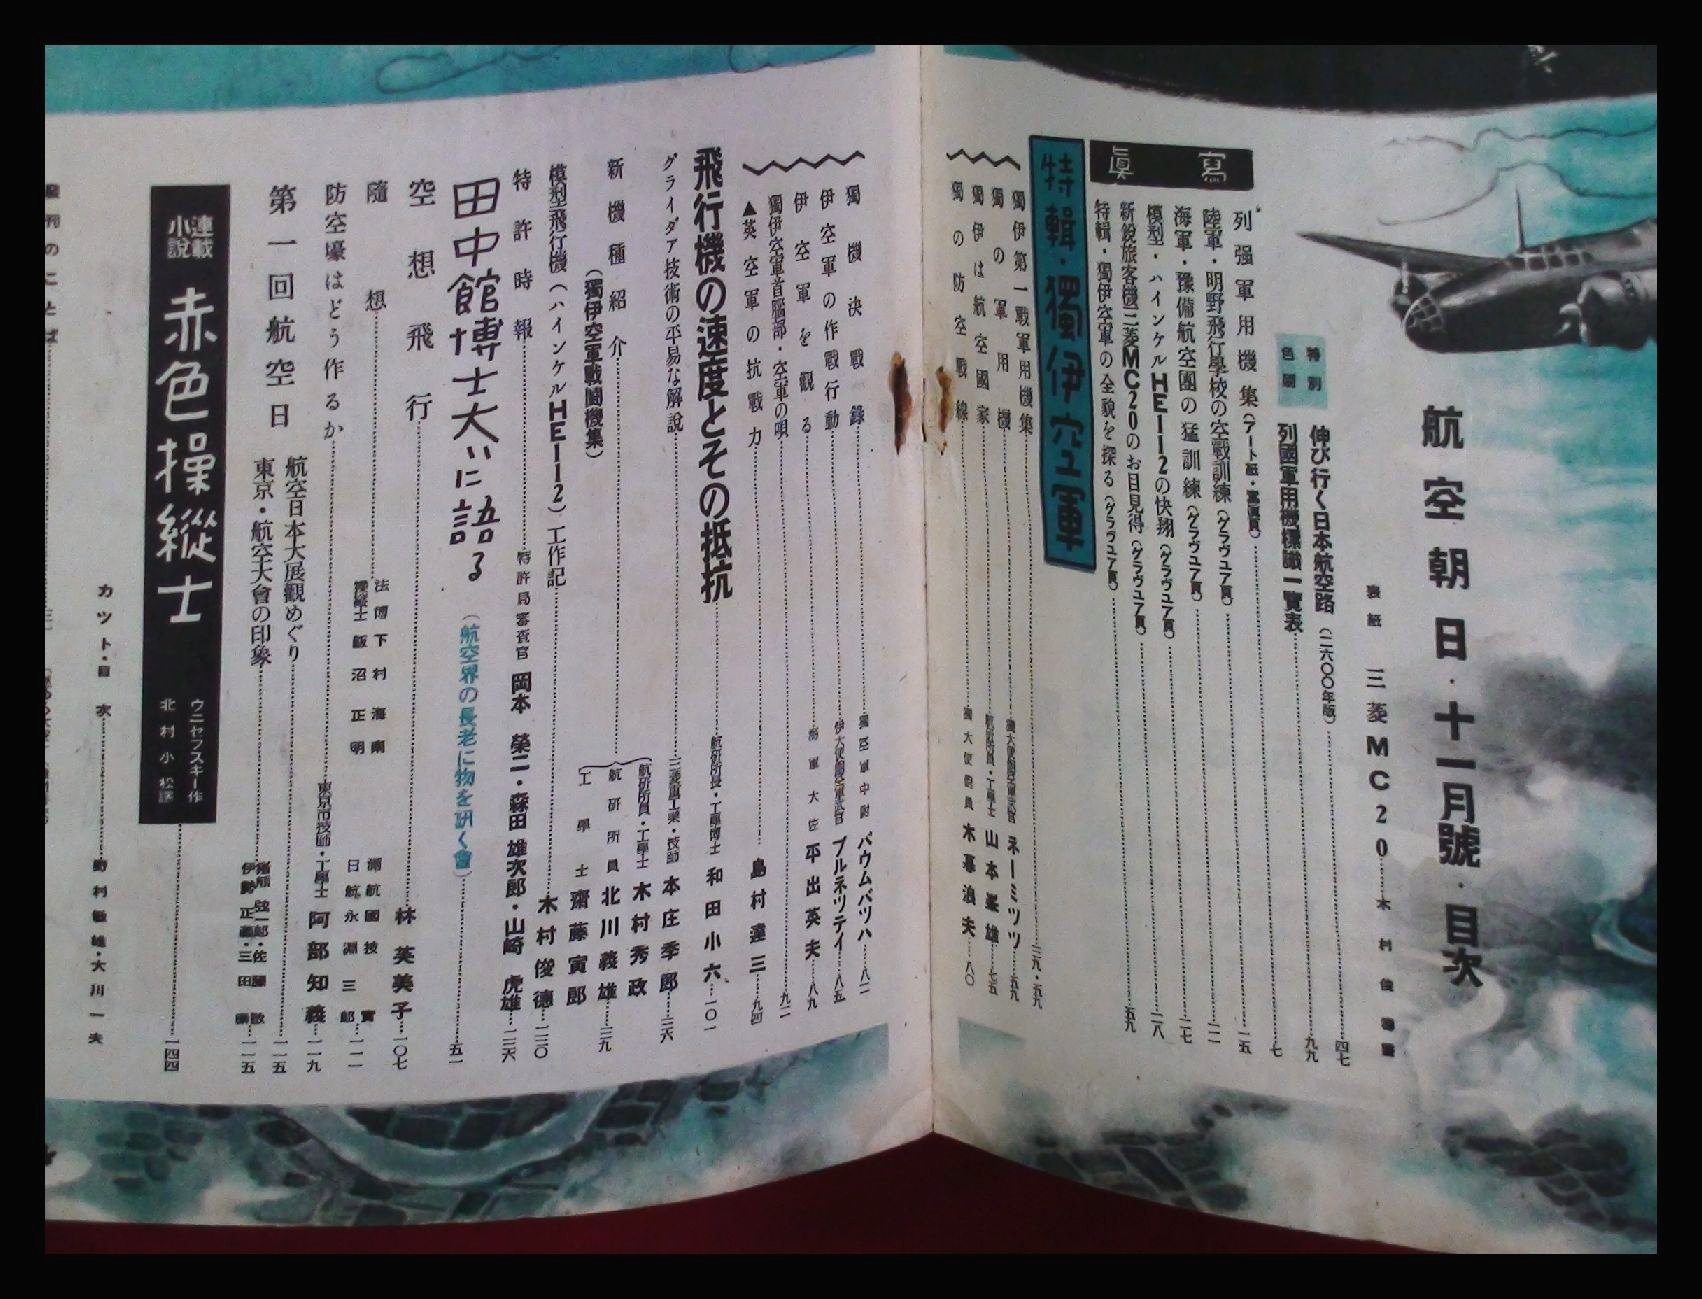 航空朝日・十一月號・目次
表紙 三菱MC20……木村俊
特別色
伸び行く日本航空路(二六〇〇年版)……四七
列國軍用機標識一覽表……九九
寫眞
列强軍用機集(アート紙・寫眞頁)……七
陸軍・明野飛行學校の空戰訓練(グラヴュア頁)……一五
海軍・豫備航空團の猛訓練(グラヴュア頁)……二一
模型・ハインケルHE112の快翔(グラヴュア頁)……二七
新銳旅客機三菱MC20のお目見得(グラヴュア頁)……二八
特輯・獨伊空軍の全貌を探る(グラヴュア頁)……五九
特輯・獨伊空軍
獨伊第一戰軍用機集……三九・五九
獨の軍用機……ネーミッツ……五九
獨伊は航空國家……航研所員・工學士 山本峯雄……七五
獨の防空戰線……獨大使館員 木暮浪夫……八〇
獨機決戰錄……獨空軍中尉 バウムバッハ……八二
伊空軍の作戰行動……ブルネッテイ……八五
伊空軍を觀る……海軍大佐 平出英夫……八九
獨伊空軍首腦部・空軍の唄……九二
▲英空軍の抗戰力……島村達三……九四
飛行機の速度とその抵抗……航硏所長・工學博士 和田小六……一〇一
グライダア技術の平易な解說……三菱重工業・技師 本庄季郎……三六
新機種紹介(獨伊空軍戰鬪機集)……航硏所員・工學士 木村秀政
航硏所員 北川義雄……三九
工學士 齋藤寅郎
模型飛行機(ハインケルHE112)工作記……木村俊德……一三〇
特許時報……特許局審査官 岡本榮二・森田雄次郎・山崎虎雄……一三六
田中館博士大いに語る(航空界の長老に物を訊く會)……五一
空想飛行……林芙美子……一〇七
隨想……法博 下村海南 滿航 國枝實
操縱士 飯沼正明 日航 永淵三郎……一一一
防空壕はどう作るか……東京市技師・工學士 阿部知義……一一九
第一回航空日
航空日本大展觀めぐり……一一五
東京・航空大會の印象……伊勢正義・三田……一一五
連載小說 赤色操縱士 ウニセフスキー作 北村小松譯……一四四
カット・目次……野村敏雄・大川一夫